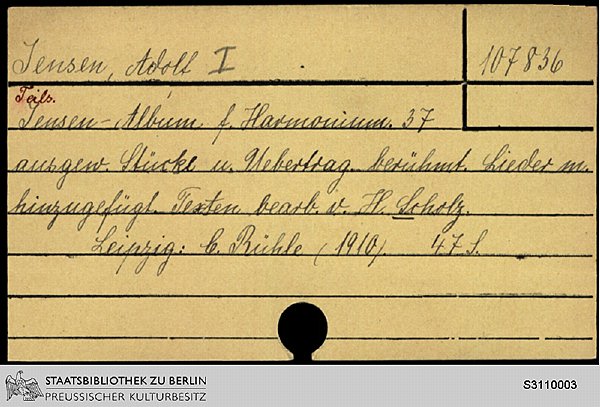 Jensen, Adolf I
107836
Teils.
Jensen-Album f. Harmonium. 37
ausgew. Stücke u. Uebertrag. berühmt. Lieder m.
hinzugefügt. Texten bearb. v. H. Scholz.
Leipzig: C. Rühle (1910). 47 S.
STAATSBIBLIOTHEK ZU BERLIN
PREUSSISCHER KULTURBESITZ
S3110003